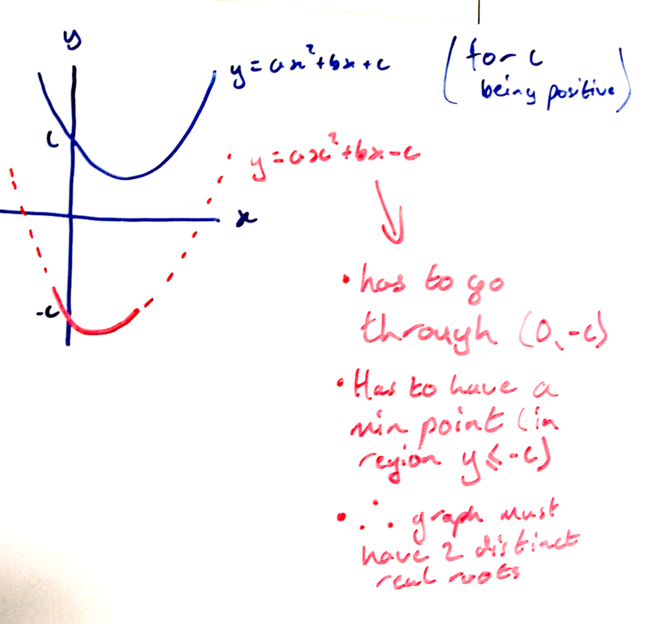 y
y=ax²+bx+c
(for c
being positive)
c
y=ax²+bx-c
x
-c
• has to go
through (0,-c)
• Has to have a
min point (in
region y≤-c)
• ∴ graph must
have 2 distinct
real roots